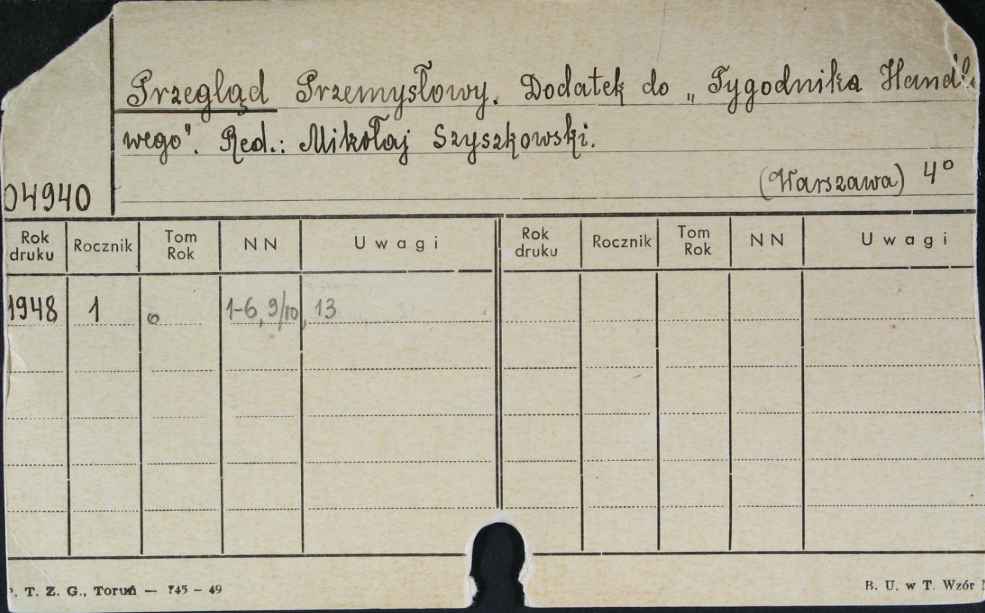 Przegląd Przemysłowy. Dodatek do „Tygodnika Handlo
wego". Red.: Mikołaj Szyszkowski.
(Warszawa) 4°
04940
Rok druku Rocznik Tom Rok NN Uwagi Rok druku Rocznik Tom Rok NN Uwagi
1948 1 o 1-6, 9/10, 13
. T. Z. G., Toruń — 745 – 49
B. U. w T. Wzór